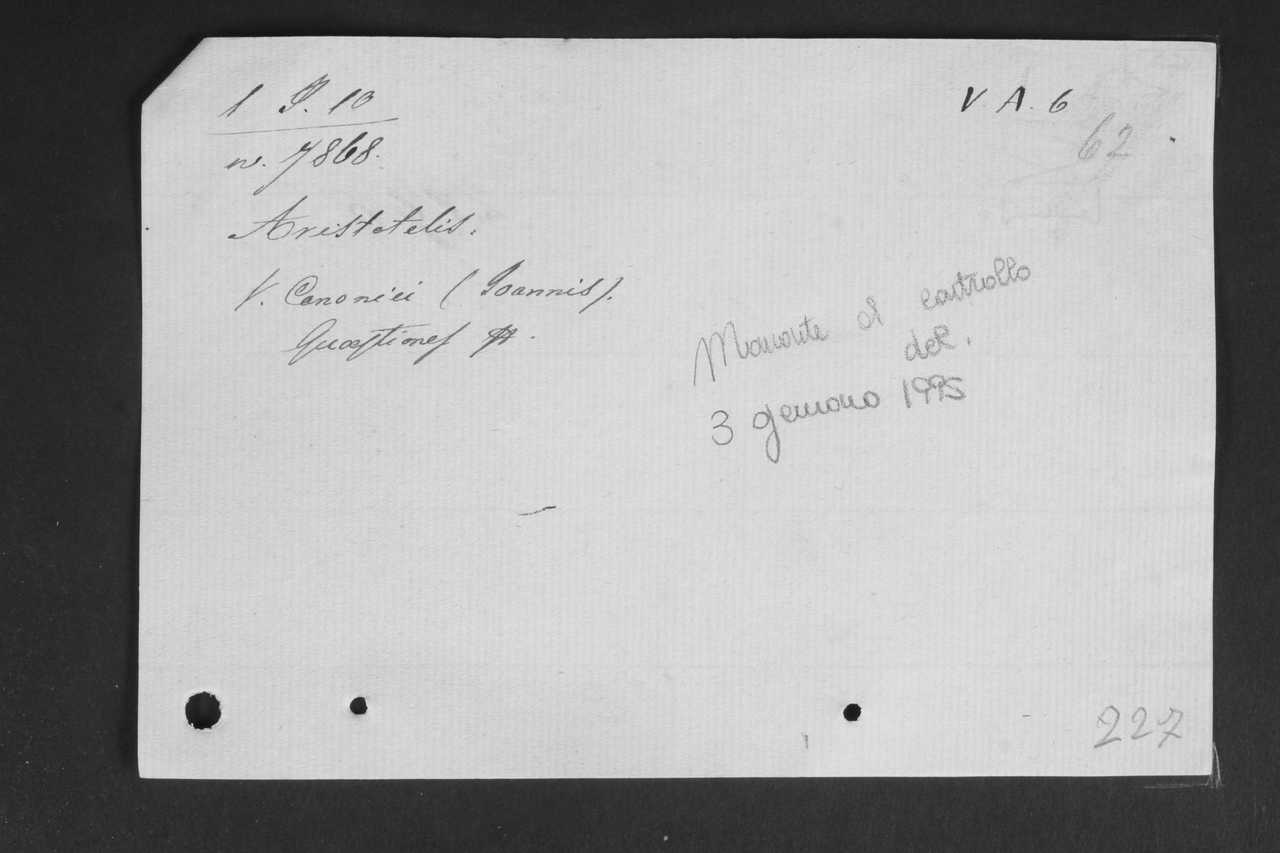 1 P. 10
V. A. 6
n. 7868.
62
Aristotelis.
V. Canonici (Joannis).
Quæstiones
Mancante al controllo
del.
3 gennaio 1995
227